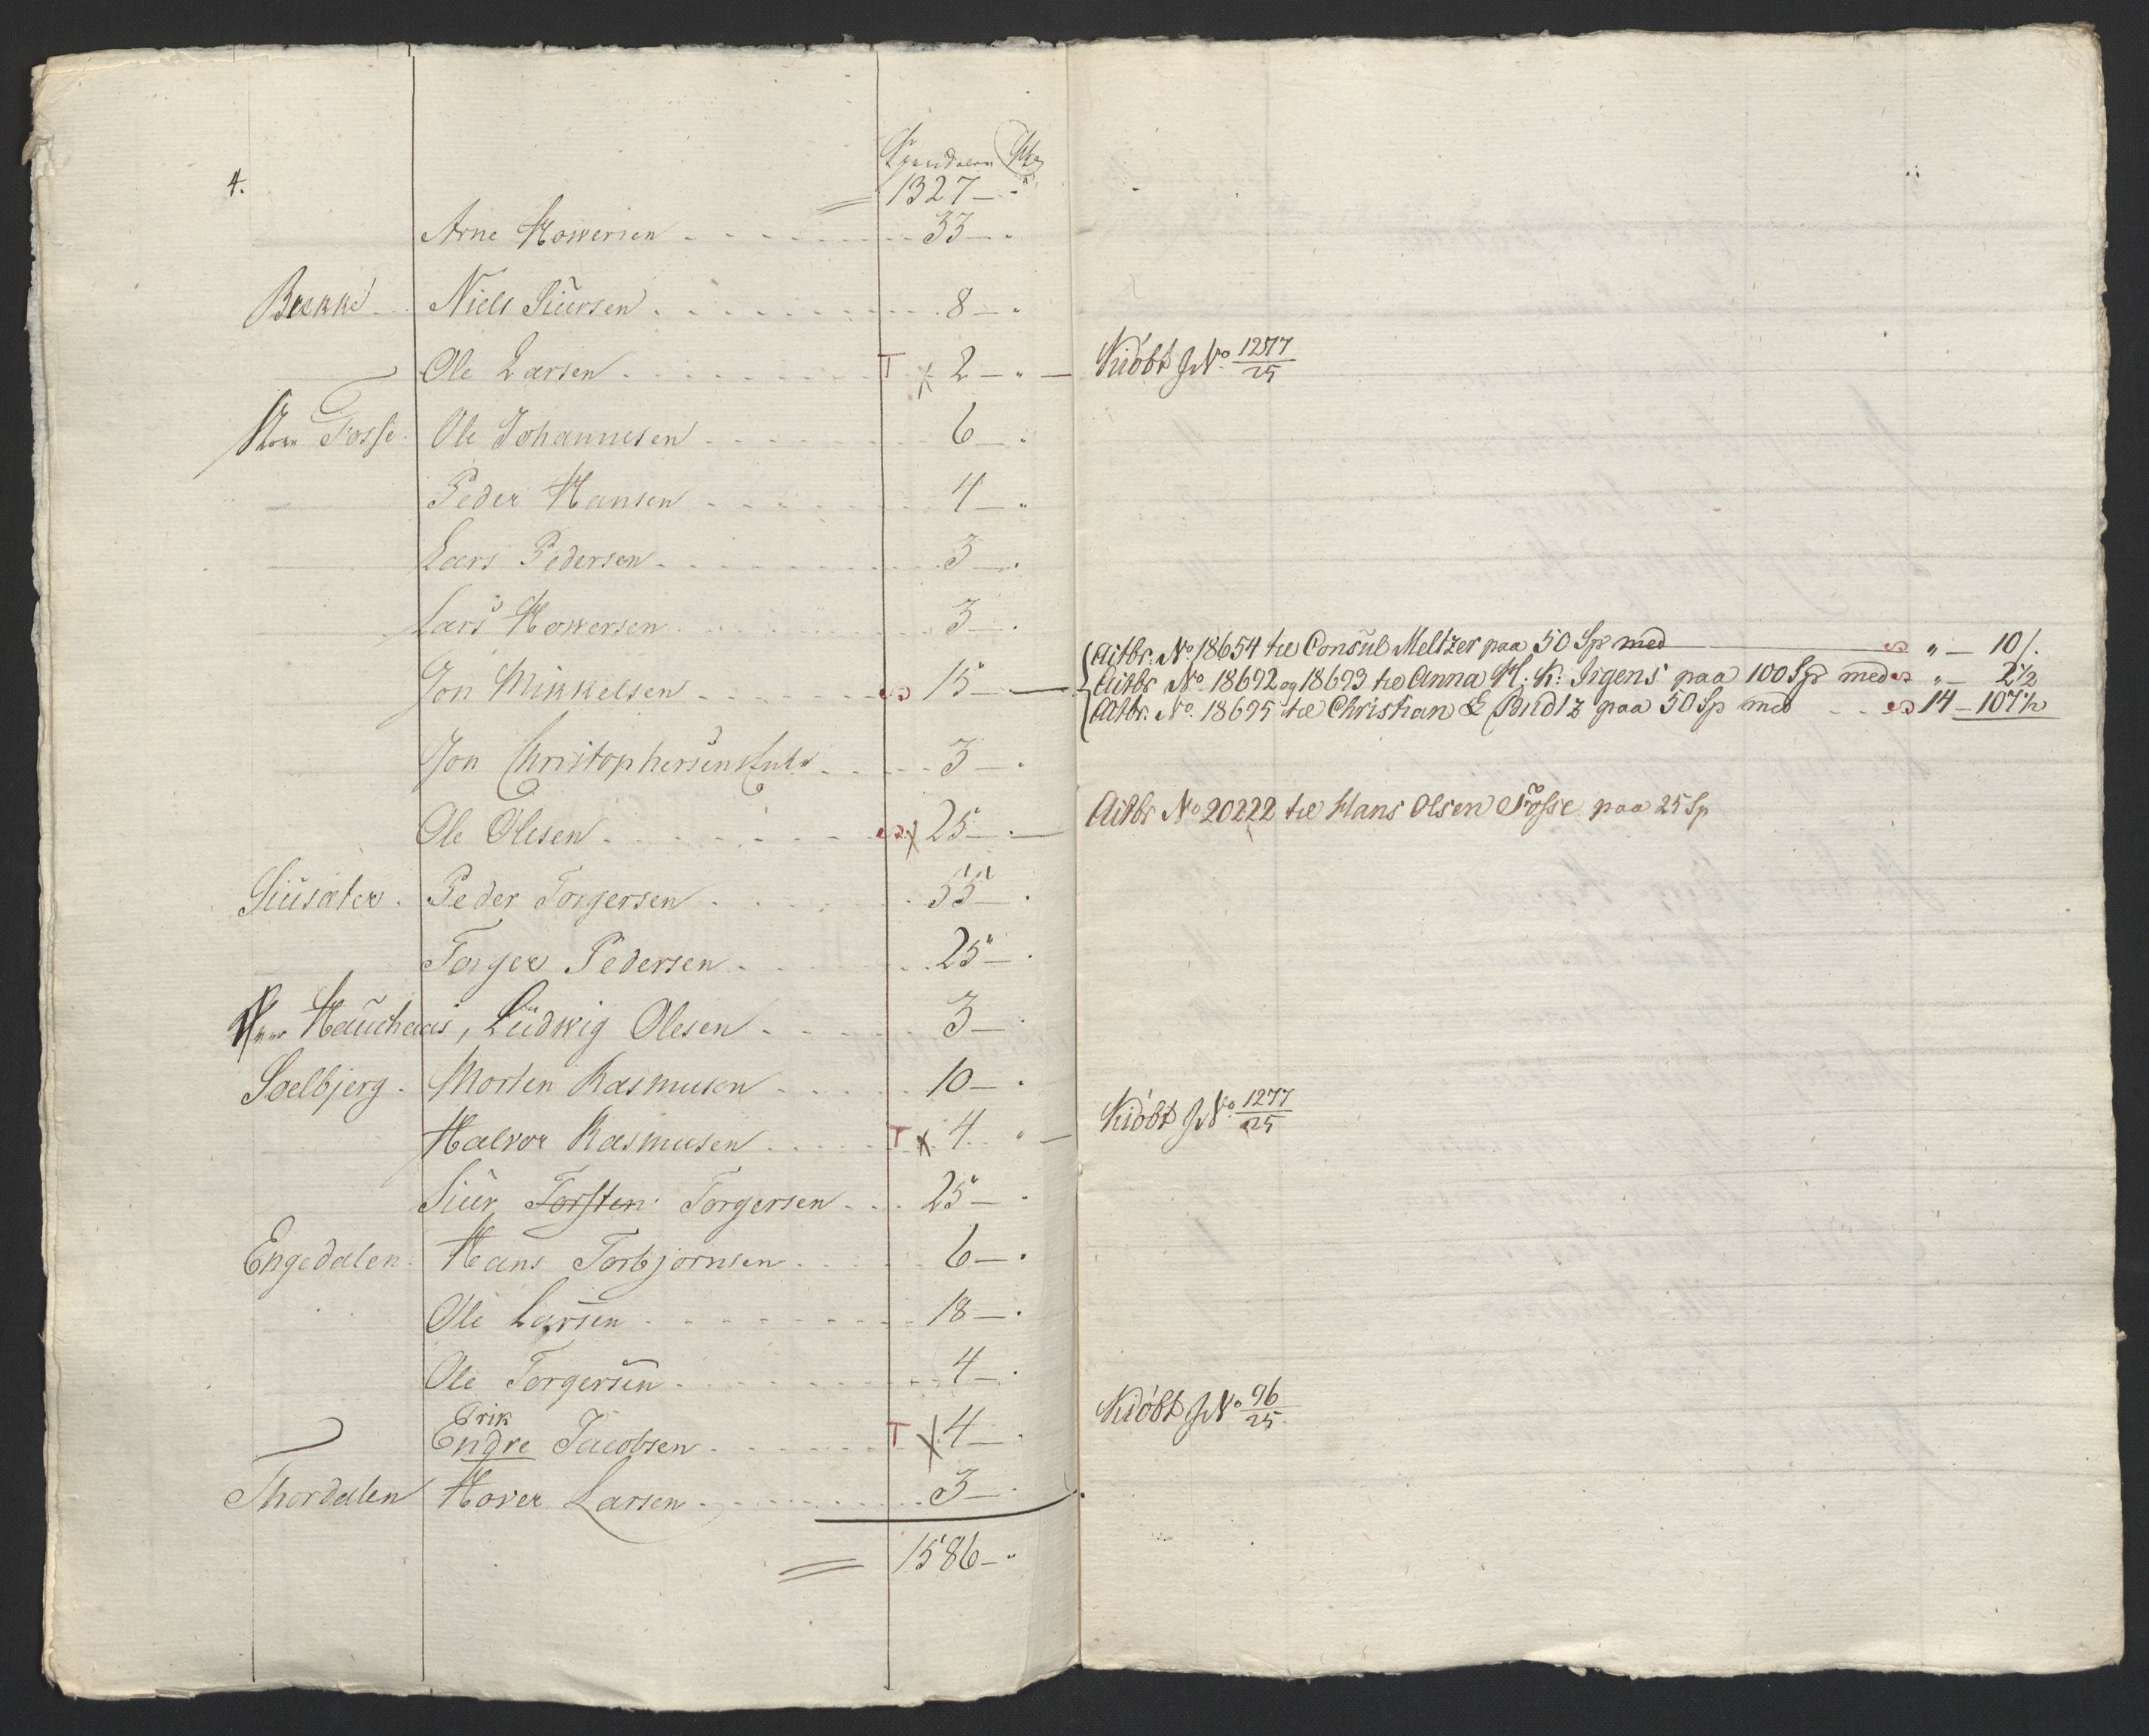 4.
Speciedaler Sk
1327 — "
Arne Howersen 33 — "
Brekke Niels Siursen 8 — "
Ole Larsen T x 2 — " — Kiöbt J No 1277/25
Fosse Ole Johannesen 6 — "
Peder Hansen 4 — "
Lars Pedersen 3 — "
Lars Howersen 3 — "
Actbr. No 18654 til Consul Meltzer paa 50 Sp med " — 101.
Jon Mikkelsen 15 — Actbr No 18692 og 18693 til Anna H. K. Irgens paa 100 Sp med " — 2½
Actbr. No. 18695 til Christian & Budtz paa 50 Sp med 14 — 107½
Jon Christophersen 3 — "
Ole Olesen x 25 — Actbr No 20222 til Hans Olsen Fosse paa 25 Sp
Siusæter Peder Torgersen 55 — "
Torger Pedersen 25 — "
Hauchaas, Ludwig Olesen 3 — "
Soelbjerg Morten Rasmusen 10 — "
Halvor Rasmusen T x 4 " — Kiöbt J No 1277/25
Siur Torsten Torgersen 25 — "
Engedalen Hans Torbjørnsen 6 — "
Ole Larsen 18 — "
Ole Torgersen 4 — "
Erik
Endre Jacobsen T x 4 — " Kiöbt J No 96/25
Thordalen Hover Larsen 3 — "
1586 — "